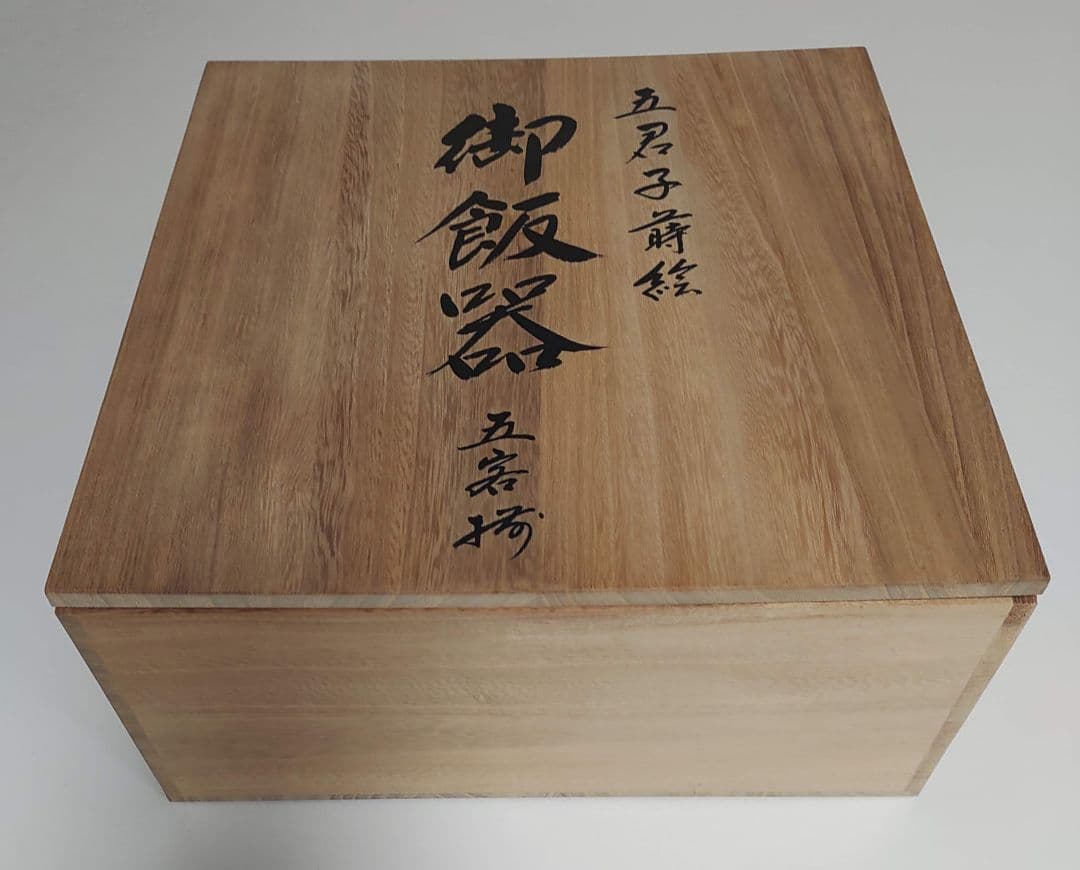 五君子蒔絵
御飯器 五客揃